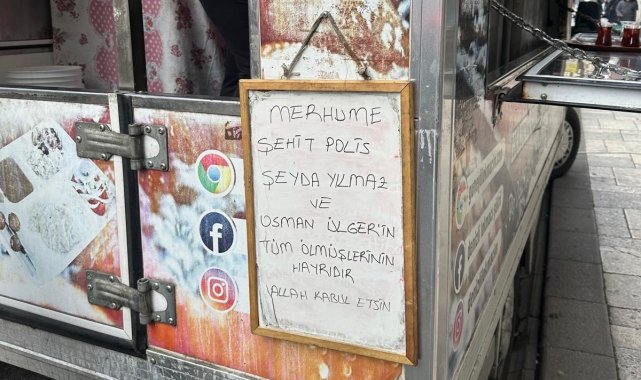 MERHUME
ŞEHİT POLİS
ŞEYDA YILMAZ
VE
OSMAN ÜLGER'İN
TÜM ÖLMÜŞLERİNİN
HAYRIDIR
ALLAH KABUL ETSİN